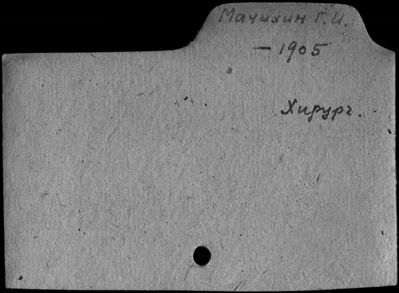 Мачихин Г.И.
— 1905
Хирург.